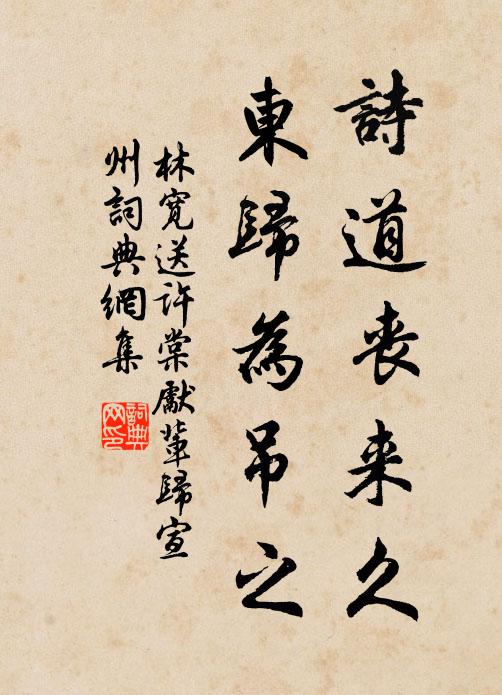 詩道丧来久
東歸為吊之
林寛送許棠獻輩歸宣
州詞典網集
詞典网印